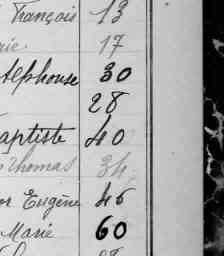 François 13
rie 17
Alphonse 30
28
aptiste 40
Thomas 34
or Eugène 46
Marie 60